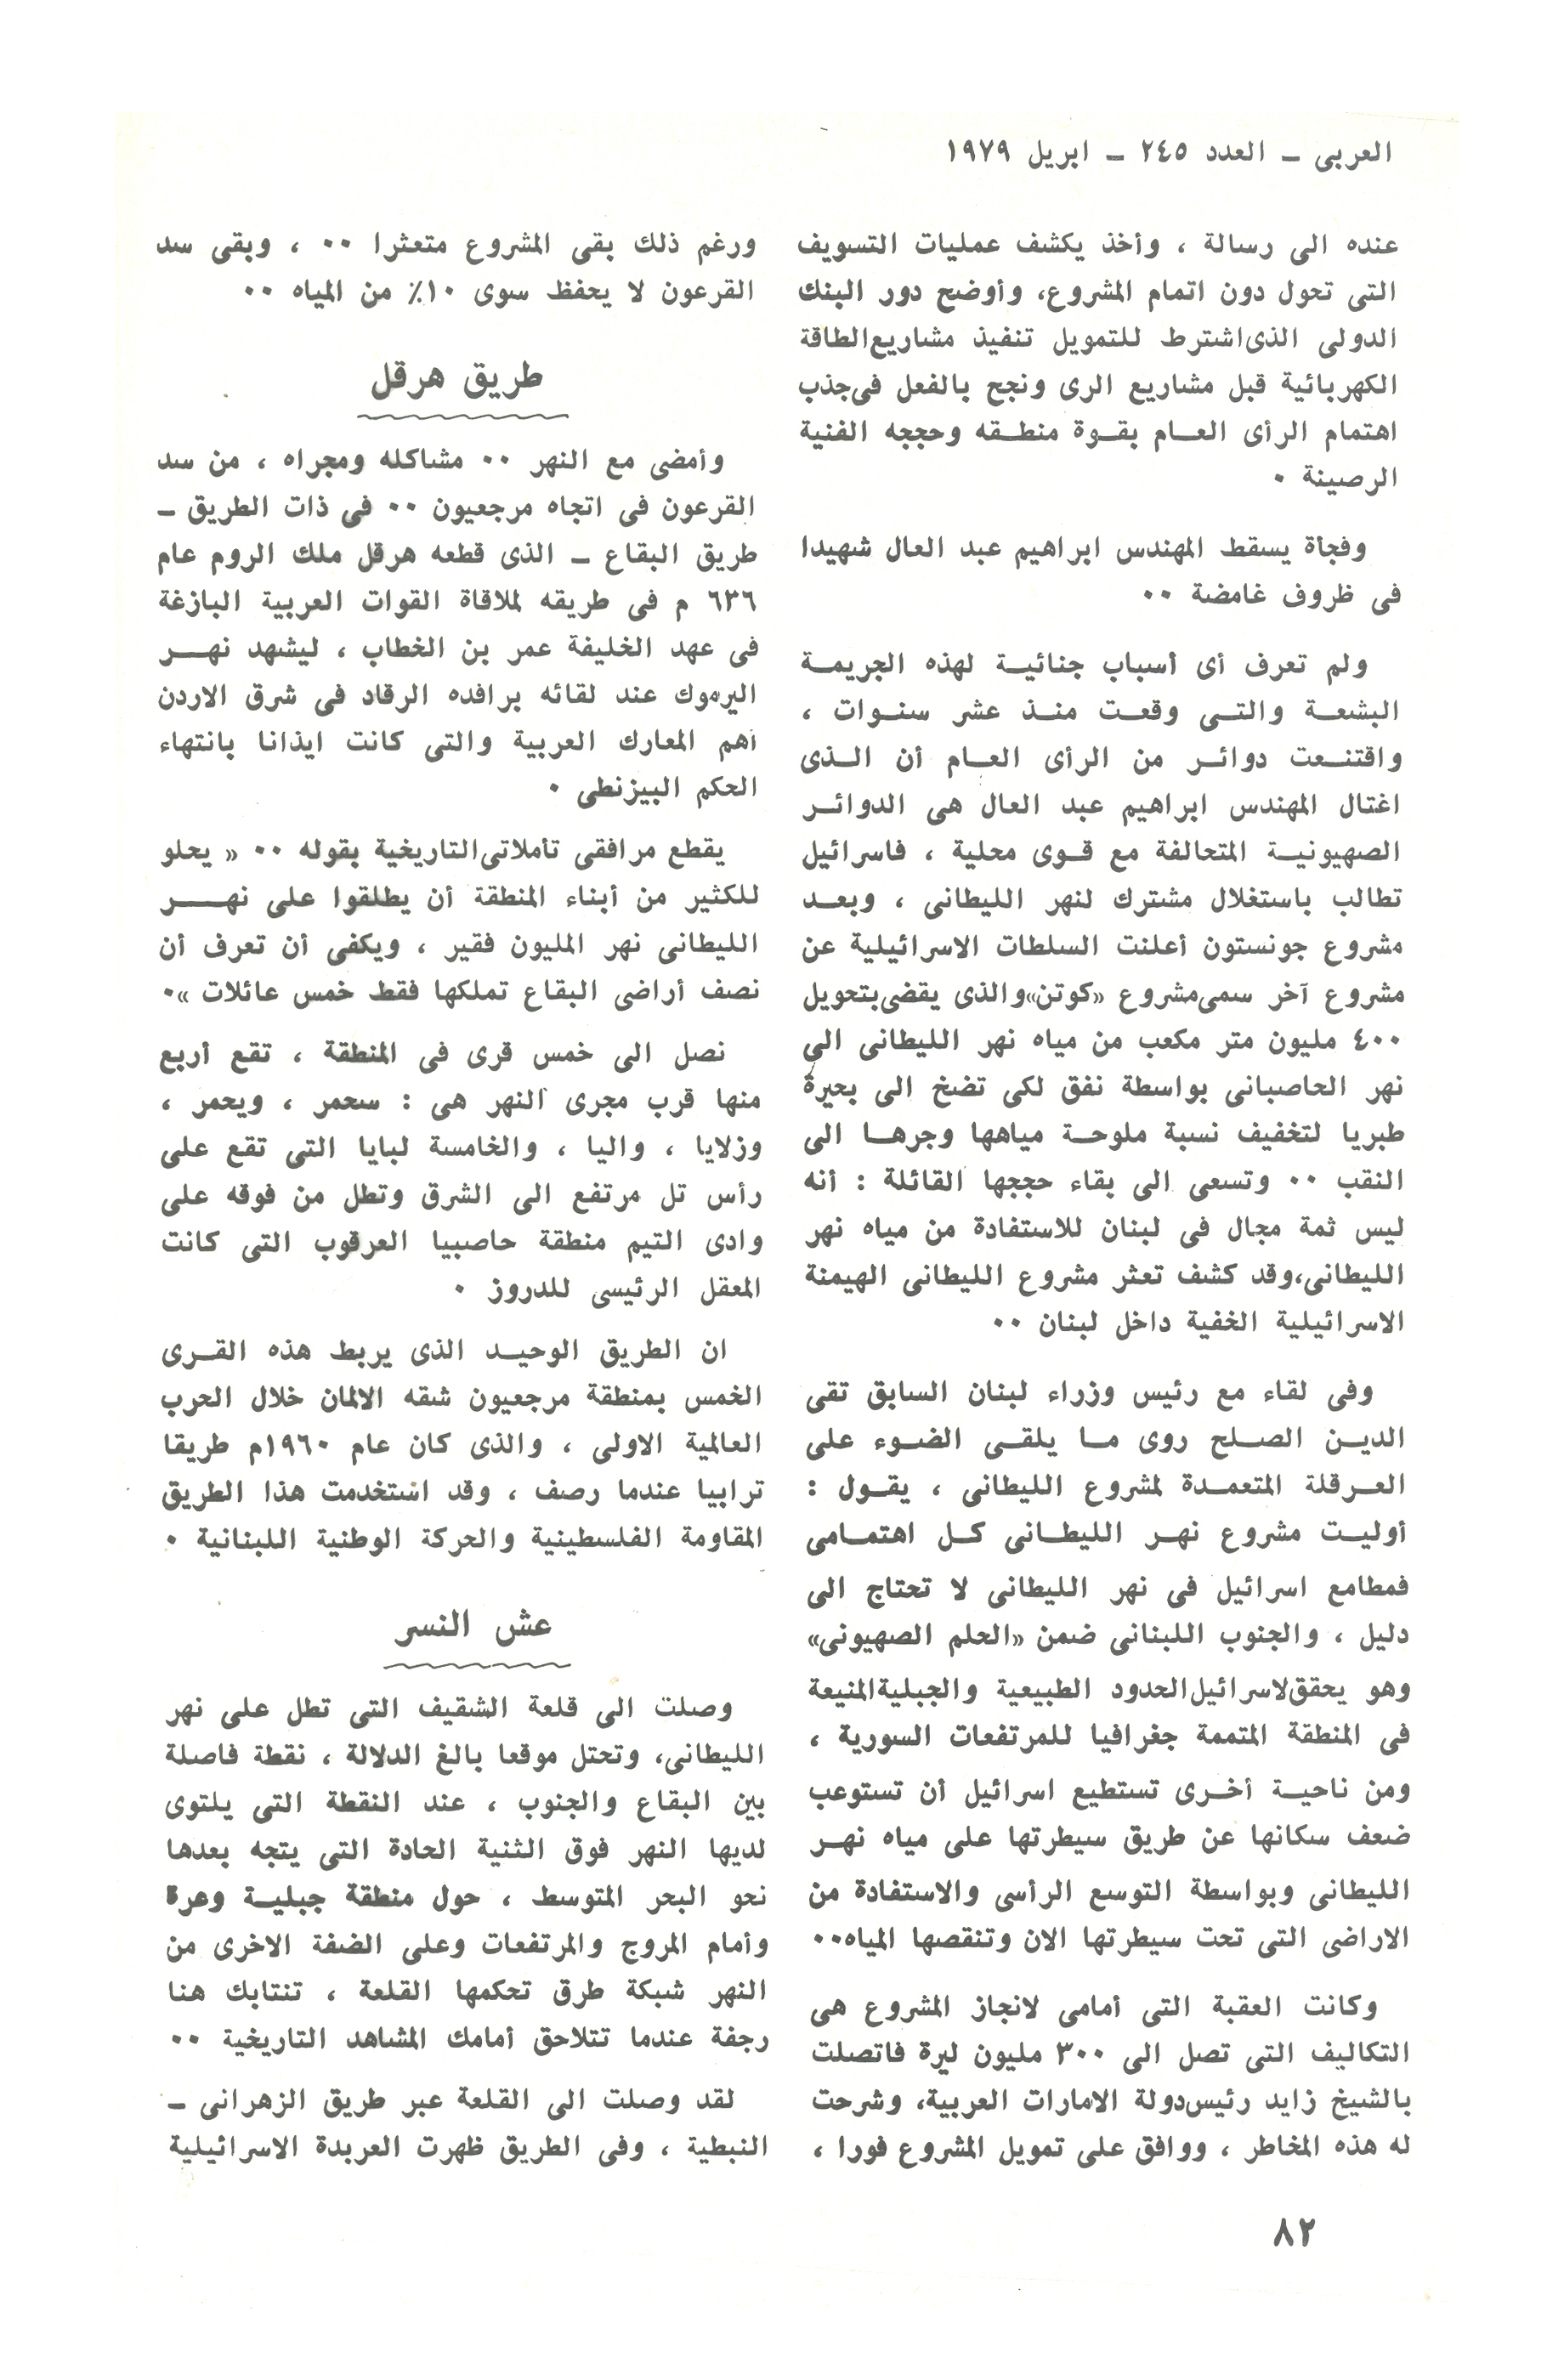 العربى ــ العدد ٢٤٥ ــ ابريل ١٩٧٩
عنده الى رسالة ، وأخذ يكشف عمليات التسويف
التى تحول دون اتمام المشروع، وأوضح دور البنك
الدولى الذى اشترط للتمويل تنفيذ مشاريع الطاقة
الكهربائية قبل مشاريع الرى ونجح بالفعل فى جذب
اهتمام الرأى العـام بقـوة منطـقه وحججه الفنية
الرصينة ٠
وفجأة يسقط المهندس ابراهيم عبد العال شهيدا
فى ظروف غامضة ٠٠
ولم تعرف أى أسباب جنائيـة لهذه الجريمـة
البشعـة والتـى وقعـت منـذ عشر سنـوات ،
واقتنـعت دوائـر من الرأى العـام أن الـذى
اغتال المهندس ابراهيم عبد العال هى الدوائـر
الصهيونيـة المتحالفة مع قـوى محلية ، فاسرائيل
تطالب باستغلال مشترك لنهر الليطانى ، وبعـد
مشروع جونستون أعلنت السلطات الاسرائيلية عن
مشروع آخر سمى مشروع «كوتن» والذى يقضى بتحويل
٤٠٠ مليون متر مكعب من مياه نهر الليطانى الى
نهر الحاصبانى بواسطة نفق لكى تضخ الى بحيرة
طبريا لتخفيف نسبة ملوحـة مياهها وجرهـا الى
النقب ٠٠ وتسعى الى بقاء حججها القائلة : أنه
ليس ثمة مجال فى لبنان للاستفادة من مياه نهر
الليطانى،وقد كشف تعثر مشروع الليطانى الهيمنة
الاسرائيلية الخفية داخل لبنان ٠٠
وفى لقاء مع رئيس وزراء لبنان السابق تقى
الديـن الصـلح روى مـا يلقـى الضـوء على
العـرقلة المتعمـدة لمشروع الليطانى ، يقـول :
أوليـت مشروع نهـر الليطـانى كـل اهتمـامى
فمطامع اسرائيل فى نهر الليطانى لا تحتاج الى
دليل ، والجنوب اللبنانى ضمن «الحلم الصهيونى»
وهو يحقق لاسرائيل الحدود الطبيعية والجبلية المنيعة
فى المنطقة المتممة جغرافيا للمرتفعات السورية ،
ومن ناحيـة أخـرى تستطيع اسرائيل أن تستوعب
ضعف سكانها عن طريق سيطرتها على مياه نهـر
الليطانى وبواسطة التوسع الرأسى والاستفادة من
الاراضى التى تحت سيطرتها الان وتنقصها المياه٠٠
وكانت العقبة التى أمامى لانجاز المشروع هى
التكاليف التى تصل الى ٣٠٠ مليون ليرة فاتصلت
بالشيخ زايد رئيس دولة الامارات العربية، وشرحت
له هذه المخاطر ، ووافق على تمويل المشروع فورا ،
ورغم ذلك بقى المشروع متعثرا ٠٠ ، وبقى سد
القرعون لا يحفظ سوى ١٠٪ من المياه ٠٠
طريق هرقل
وأمضى مع النهر ٠٠ مشاكله ومجراه ، من سد
القرعون فى اتجاه مرجعيون ٠٠ فى ذات الطريق ــ
طريق البقاع ــ الذى قطعه هرقل ملك الروم عام
٦٣٦ م فى طريقه لملاقاة القوات العربية البازغة
فى عهد الخليفة عمر بن الخطاب ، ليشهد نهـــر
اليرموك عند لقائه برافده الرقاد فى شرق الاردن
أهم المعارك العربية والتى كانت ايذانا بانتهاء
الحكم البيزنطى ٠
يقطع مرافقى تأملاتى التاريخية بقوله ٠٠ « يحلو
للكثير من أبناء المنطقة أن يطلقوا على نهـــر
الليطانى نهر المليون فقير ، ويكفى أن تعرف أن
نصف أراضى البقاع تملكها فقط خمس عائلات »٠
نصل الى خمس قرى فى المنطقة ، تقع أربع
منها قرب مجرى النهر هى : سحمر ، ويحمر ،
وزلايا ، واليا ، والخامسة لبايا التى تقع على
رأس تل مرتفع الى الشرق وتطل من فوقه على
وادى التيم منطقة حاصبيا العرقوب التى كانت
المعقل الرئيسى للدروز ٠
ان الطريق الوحيـد الذى يربط هذه القـرى
الخمس بمنطقة مرجعيون شقه الالمان خلال الحرب
العالمية الاولى ، والذى كان عام ١٩٦٠م طريقا
ترابيا عندما رصف ، وقد استخدمت هذا الطريق
المقاومة الفلسطينية والحركة الوطنية اللبنانية ٠
عش النسر
وصلت الى قلعة الشقيف التى تطل على نهر
الليطانى، وتحتل موقعا بالغ الدلالة ، نقطة فاصلة
بين البقاع والجنوب ، عند النقطة التى يلتوى
لديها النهر فوق الثنية الحادة التى يتجه بعدها
نحو البحر المتوسط ، حول منطقة جبليـة وعرة
وأمام المروج والمرتفعات وعلى الضفة الاخرى من
النهر شبكة طرق تحكمها القلعة ، تنتابك هنا
رجفة عندما تتلاحق أمامك المشاهد التاريخية ٠٠
لقد وصلت الى القلعة عبر طريق الزهرانى ــ
النبطية ، وفى الطريق ظهرت العربدة الاسرائيلية
٨٢